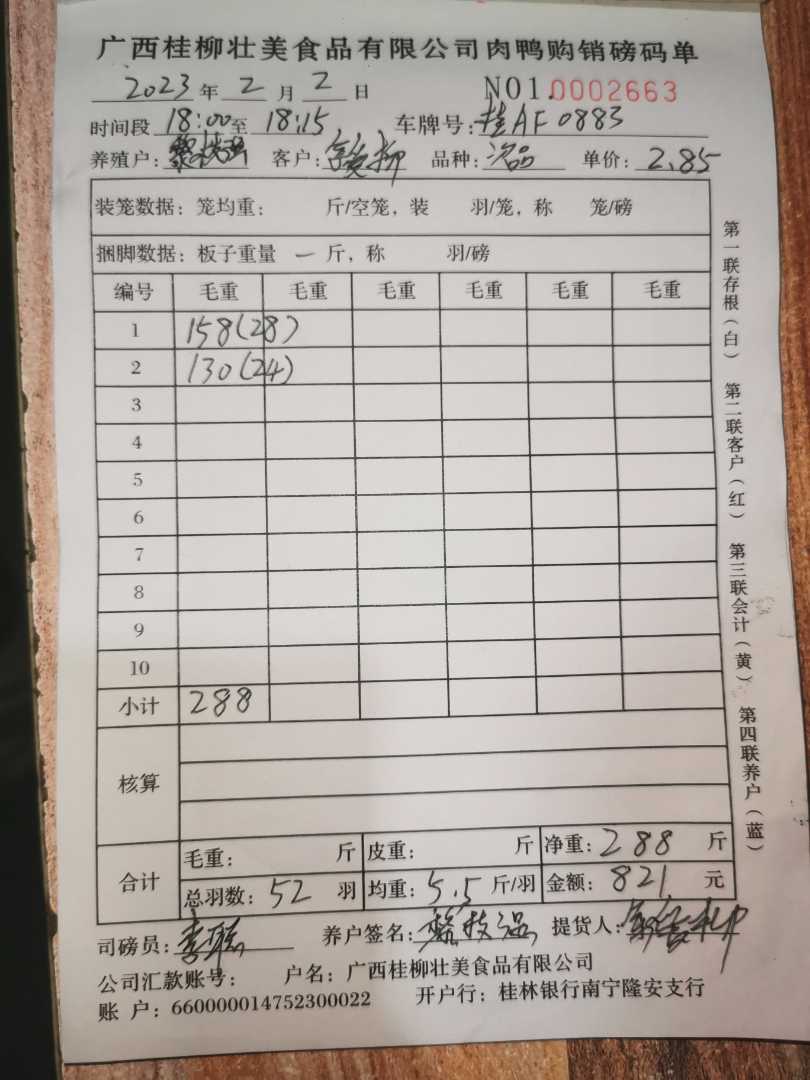 广西桂柳壮美食品有限公司肉鸭购销磅码单
2023 年 2 月 2 日 NO1.0002663
时间段 18:00 至 18:15 车牌号: 桂AF0883
养殖户: 客户: 品种: 次品 单价: 2.85
装笼数据: 笼均重: 斤/空笼, 装 羽/笼, 称 笼/磅
捆脚数据: 板子重量 一 斤, 称 羽/磅
编号 毛重 毛重 毛重 毛重 毛重 毛重
1 158(28)
2 130(24)
3
4
5
6
7
8
9
10
小计 288
核算
合计 毛重: 斤 皮重: 斤 净重: 288 斤
总羽数: 52 羽 均重: 5.5 斤/羽 金额: 821 元
司磅员: 养户签名: 提货人:
公司汇款账号: 户名: 广西桂柳壮美食品有限公司
账 户: 660000014752300022 开户行: 桂林银行南宁隆安支行
第一联存根(白) 第二联客户(红) 第三联会计(黄) 第四联养户(蓝)